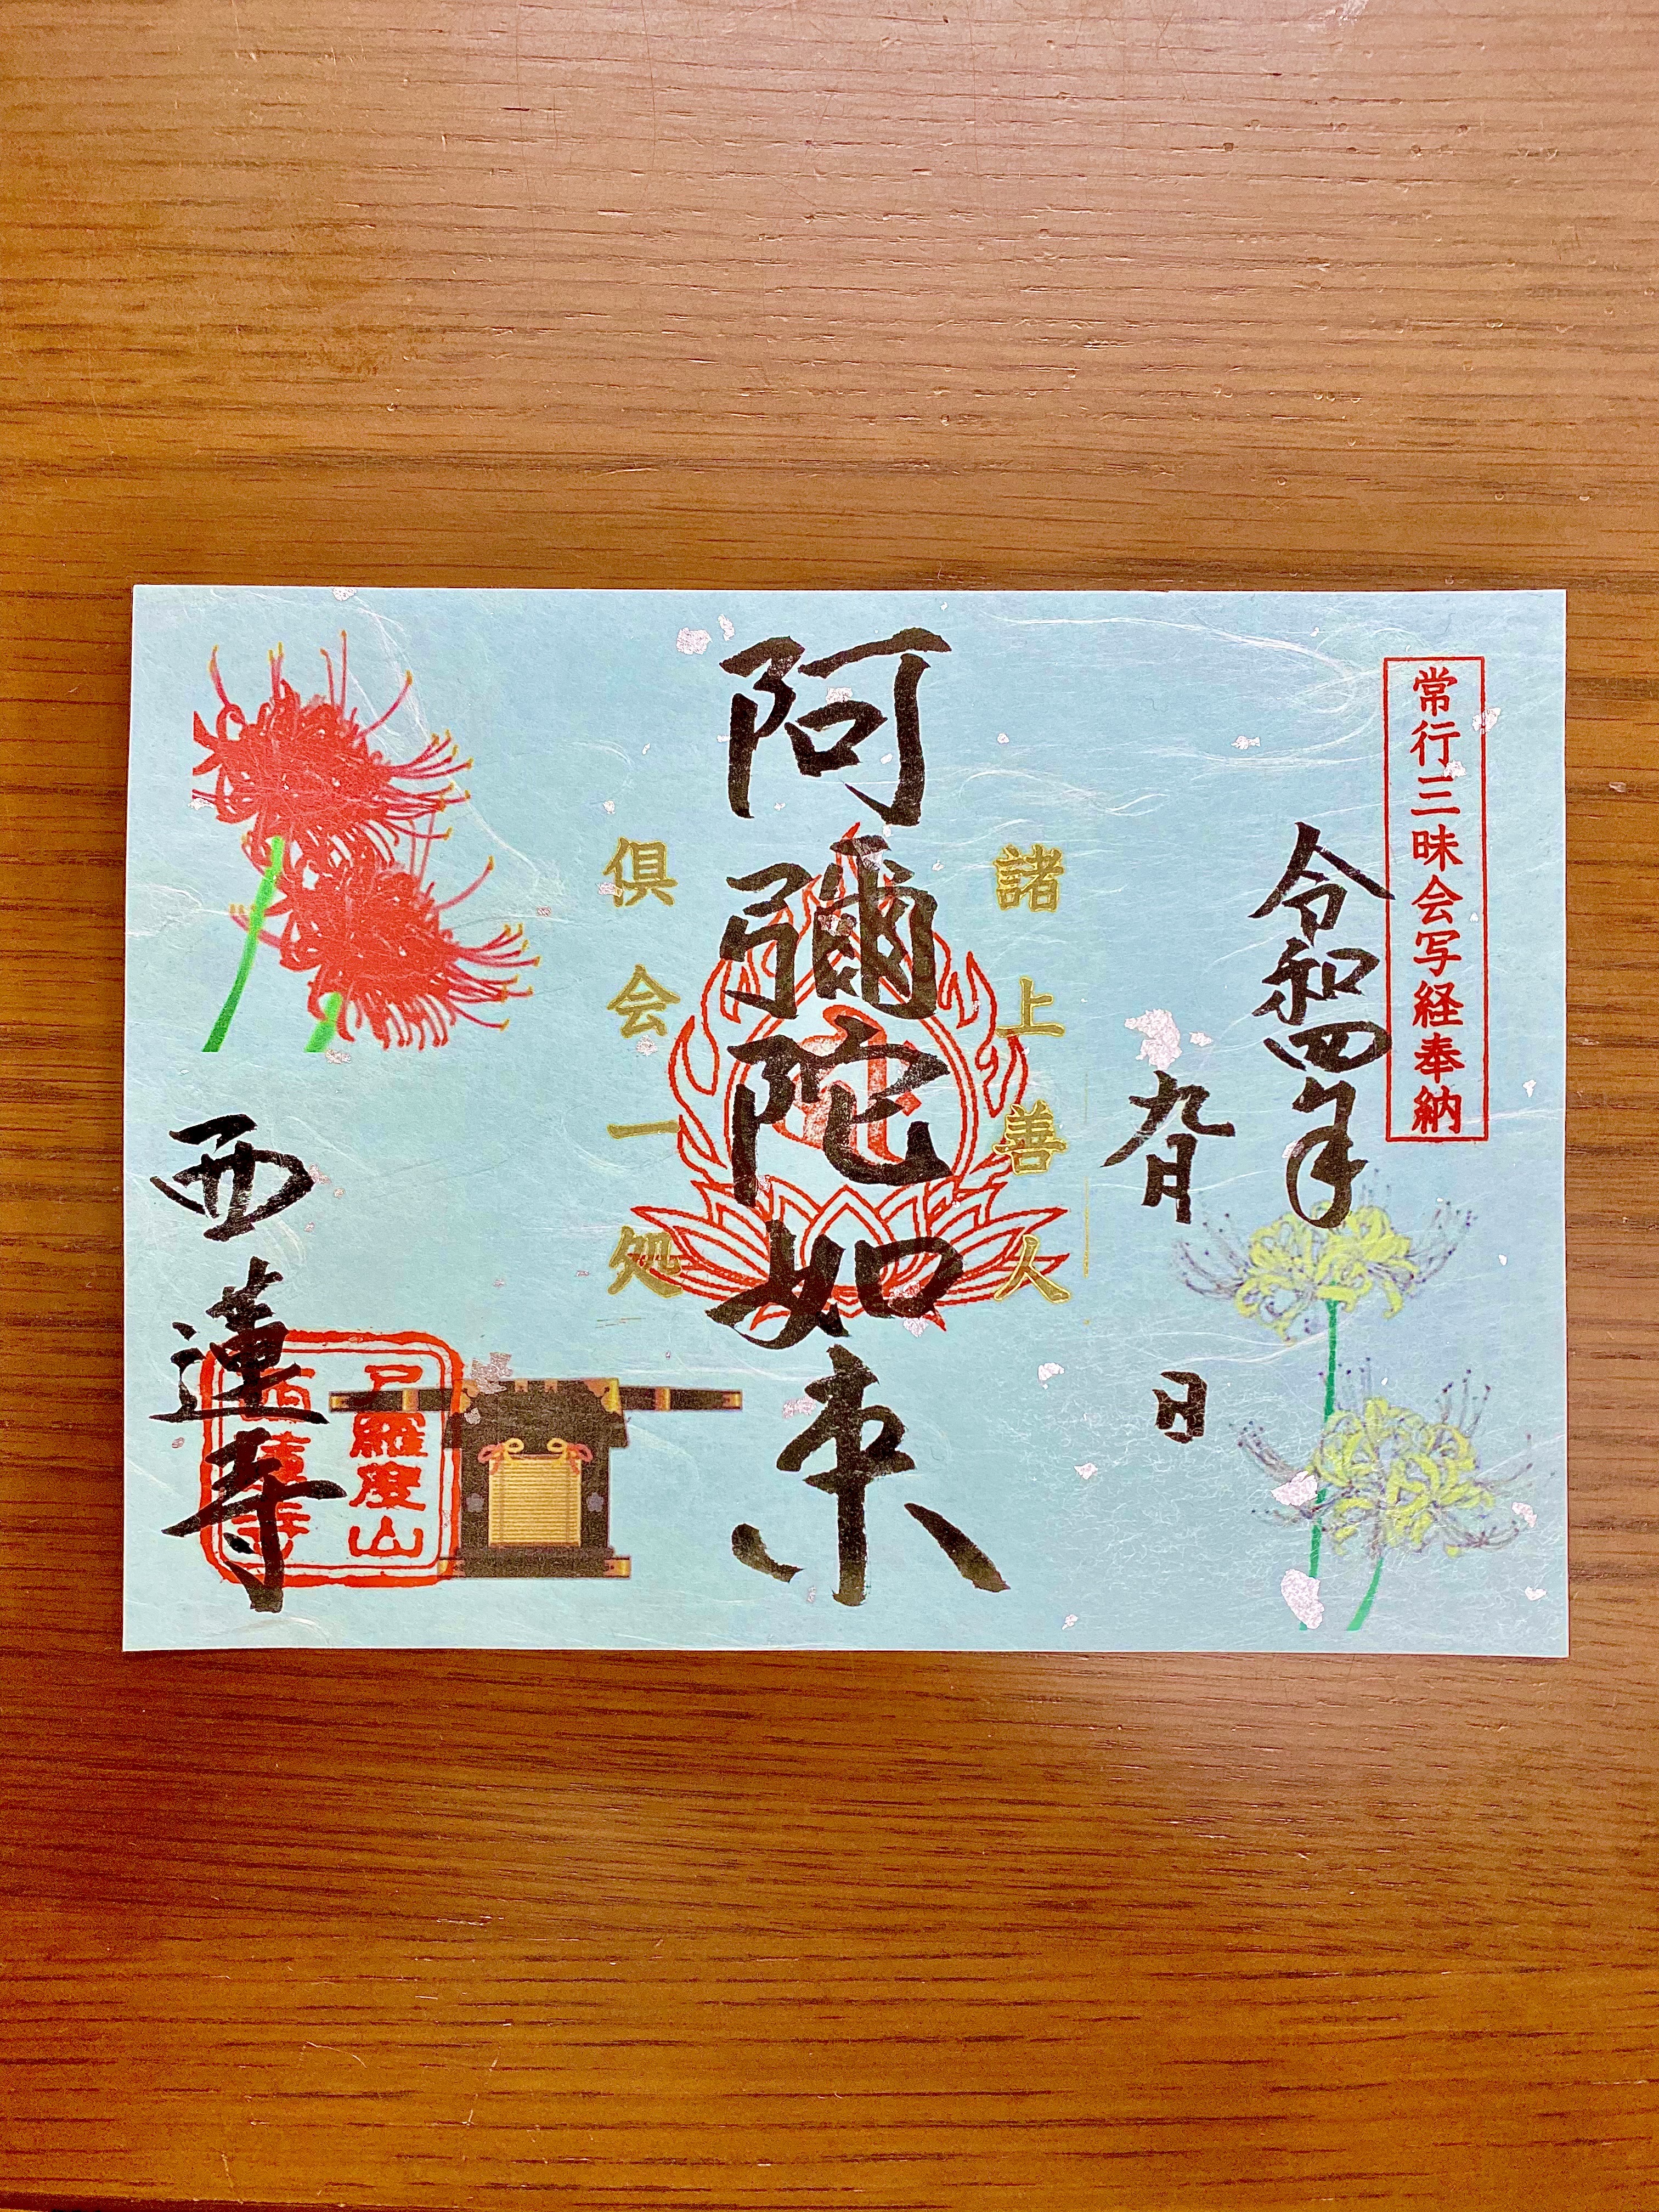 常行三昧会写経奉納
令和四年
九月 日
諸上善人
阿彌陀如来
倶会一処
西蓮寺
尸羅度山
西蓮寺